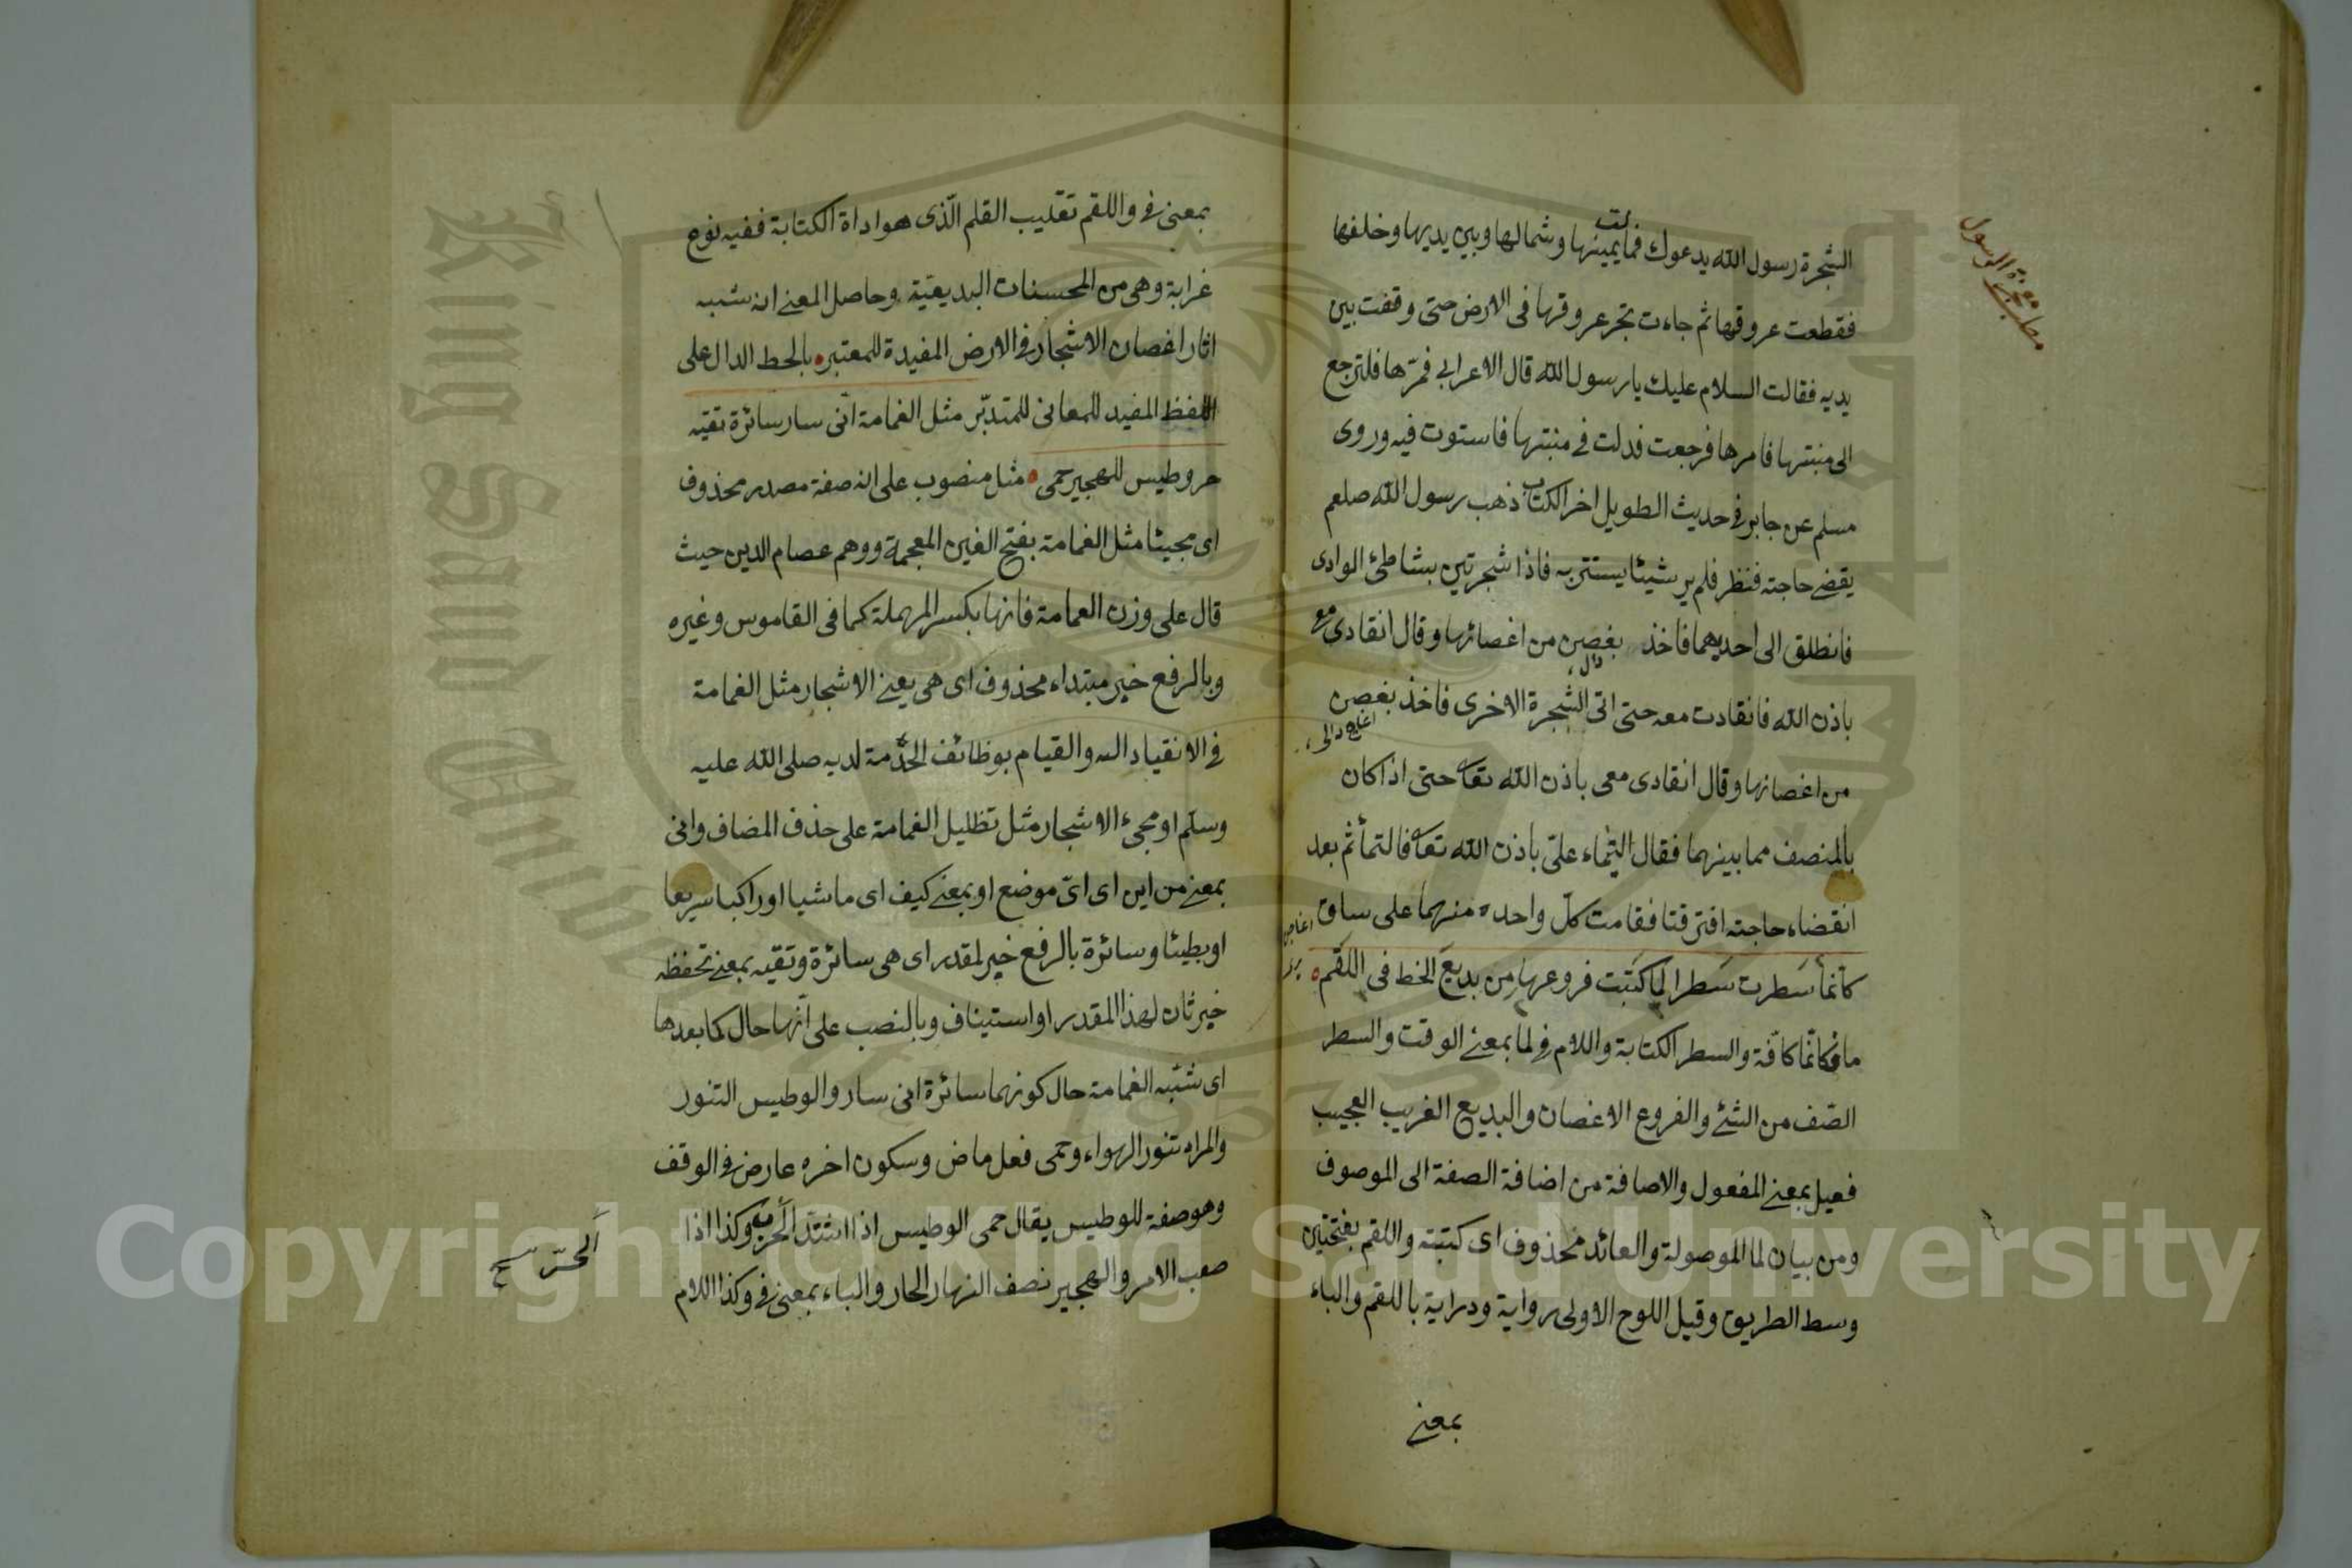 مطلب معجزة الرسول
الشجرة رسول الله يدعوك فمالت يمينها وشمالها وبين يديها وخلفها
فقطعت عروقها ثم جاءت تجر عروقها فى الارض حتى وقفت بين
يديه فقالت السلام عليك يا رسول الله قال الاعرابى فمرها فلترجع
الى منبتها فامرها فرجعت فدلت فى منبتها فاستوت فيه وروى
مسلم عن جابر فى حديث الطويل اخر الكتاب ذهب رسول الله صلعم
يقضى حاجته فنظر فلم ير شيئا يستتر به فاذا شجرتين بشاطئ الوادى
فانطلق الى احديهما فاخذ بغصن من اغصانها وقال انقادى مع
باذن الله فانقادت معه حتى اتى الشجرة الاخرى فاخذ بغصن
من اغصانها وقال انقادى معى باذن الله تعا حتى اذا كان
بالمنصف مما بينهما فقال التئماء على باذن الله تعا فالتمأ ثم بعد
انقضاء حاجته افترقتا فقامت كل واحدة منهما على ساق
كأنما سطرت سطرا لما كتبت فروعها من بديع الخط فى اللقم
ما فى كانما كافة والسطر الكتابة واللام فى لما بمعنى الوقت والسطر
الصف من الشئ والفروع الاغصان والبديع الغريب العجيب
فعيل بمعنى المفعول والاضافة من اضافة الصفة الى الموصوف
ومن بيان لما الموصولة والعائد محذوف اى كتبته واللقم بفتحتين
وسط الطريق وقيل اللوح الاولى رواية ودراية باللقم والباء
بمعنى
بمعنى فى واللقم تقليب القلم الذى هو اداة الكتابة ففيه نوع
غرابة وهى من المحسنات البديعية وحاصل المعنى انه شبه
اثار اغصان الاشجار فى الارض المفيدة للمعتبر بالخط الدال على
اللفظ المفيد للمعانى للمتدبر مثل الغمامة انى سار سائرة تقيه
حر وطيس للهجير حمى مثل منصوب على انه صفة مصدر محذوف
اى مجيئا مثل الغمامة بفتح الغين المعجمة ووهم عصام الدين حيث
قال على وزن العمامة فانها بكسر المهملة كما فى القاموس وغيره
وبالرفع خبر مبتداء محذوف اى هى يعنى الاشجار مثل الغمامة
فى الانقياد اليه والقيام بوظائف الخدمة لديه صلى الله عليه
وسلم او مجىء الاشجار مثل تظليل الغمامة على حذف المضاف وانى
بمعنى من اين اى اى موضع او بمعنى كيف اى ماشيا او راكبا سريعا
او بطيئا وسائرة بالرفع خبر لمقدر اى هى سائرة وتقيه بمعنى تحفظه
خبر ثان لهذا المقدر او استيناف وبالنصب على انها حال كما بعدها
اى شبه الغمامة حال كونها سائرة انى سار والوطيس التنور
والمراد تنور الهواء وحمى فعل ماض وسكون اخره عارض فى الوقف
وهو صفة للوطيس يقال حمى الوطيس اذا اشتد الحرب وكذا اذا
صعب الامر والهجير نصف النهار الحار والباء بمعنى فى وكذا اللام
الحرّ
Copyright © King Saud University
King Saud University
1957